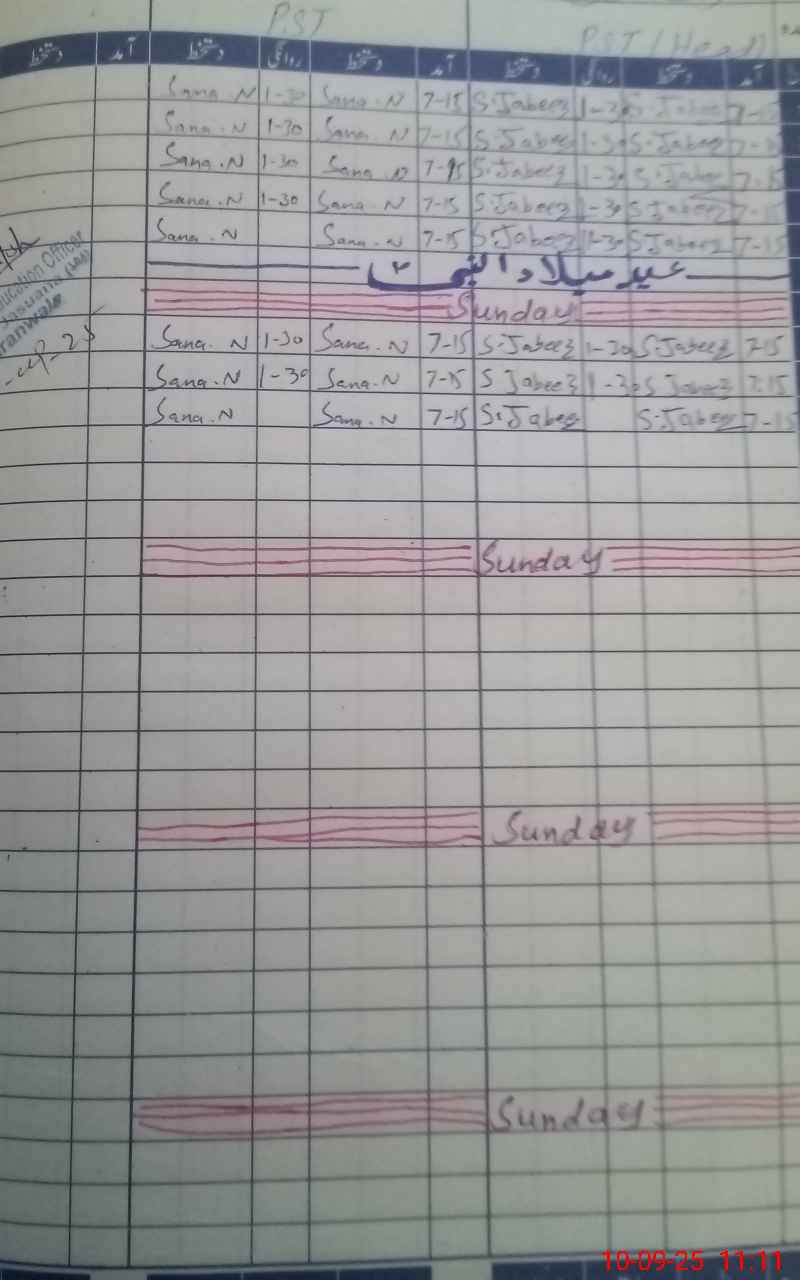 P.ST
P.ST (Head)
دستخط آمد دستخط روانگی دستخط آمد دستخط روانگی دستخط آمد
Sana.N 1-30 Sana.N 7-15 S.Jabeez 1-30 S.Jabeez 7-15
Sana.N 1-30 Sana.N 7-15 S.Jabeez 1-30 S.Jabeez 7-15
Sana.N 1-30 Sana.N 7-15 S.Jabeez 1-30 S.Jabeez 7-15
Sana.N 1-30 Sana.N 7-15 S.Jabeez 1-30 S.Jabeez 7-15
Sana.N Sana.N 7-15 S.Jabeez 1-30 S.Jabeez 7-15
عید میلاد النبی
Sunday
Sana.N 1-30 Sana.N 7-15 S.Jabeez 1-30 S.Jabeez 7-15
Sana.N 1-30 Sana.N 7-15 S Jabeez 1-30 S Jabeez 7-15
Sana.N Sana.N 7-15 S.Jabeez S.Jabeez 7-15
ucation Officer
Sunday
Sunday
Sunday
10-09-25 11:11